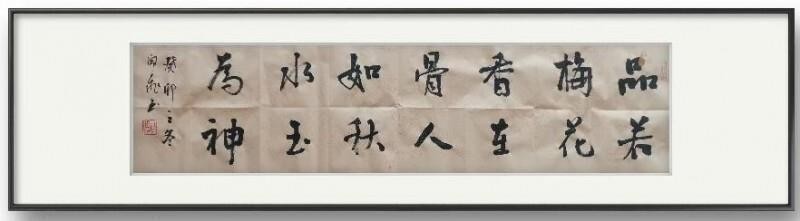 品若
梅花
香在
骨人
如秋
水玉
為神
癸卯之冬